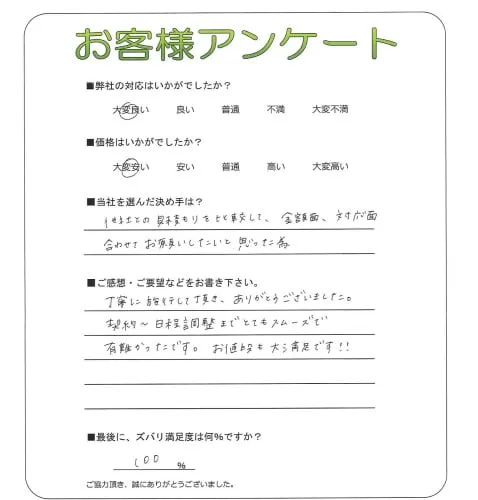 お客様アンケート
■弊社の対応はいかがでしたか？
大変良い 良い 普通 不満 大変不満
■価格はいかがでしたか？
大変安い 安い 普通 高い 大変高い
■当社を選んだ決め手は？
他社との見積もりを比較して、金額面、対応面
合わせてお願いしたいと思った為
■ご感想・ご要望などをお書き下さい。
丁寧に施行して頂き、ありがとうございました。
契約～日程調整までとてもスムーズで
有難かったです。お値段も大満足です!!
■最後に、ズバリ満足度は何%ですか？
100 %
ご協力頂き、誠にありがとうございました。